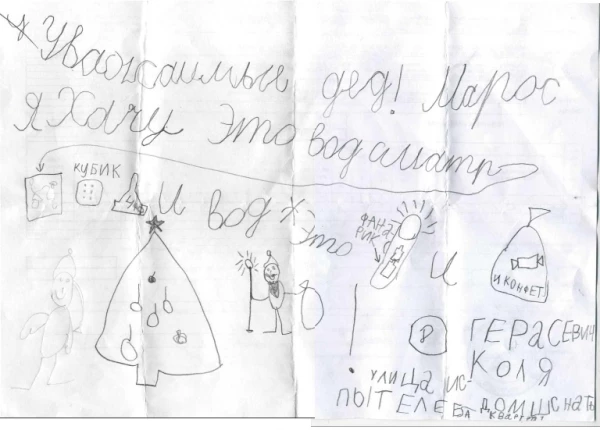 Уважаимый дед! Марос
я Хачу это вод сматр
КУБИК
И вод это
ФАНА
РИК
И
И КОНФЕТ
ГЕРАСЕВИЧ
КОЛЯ
УЛИЦА ИС-
ПЫТЕЛЕВА ДОМ